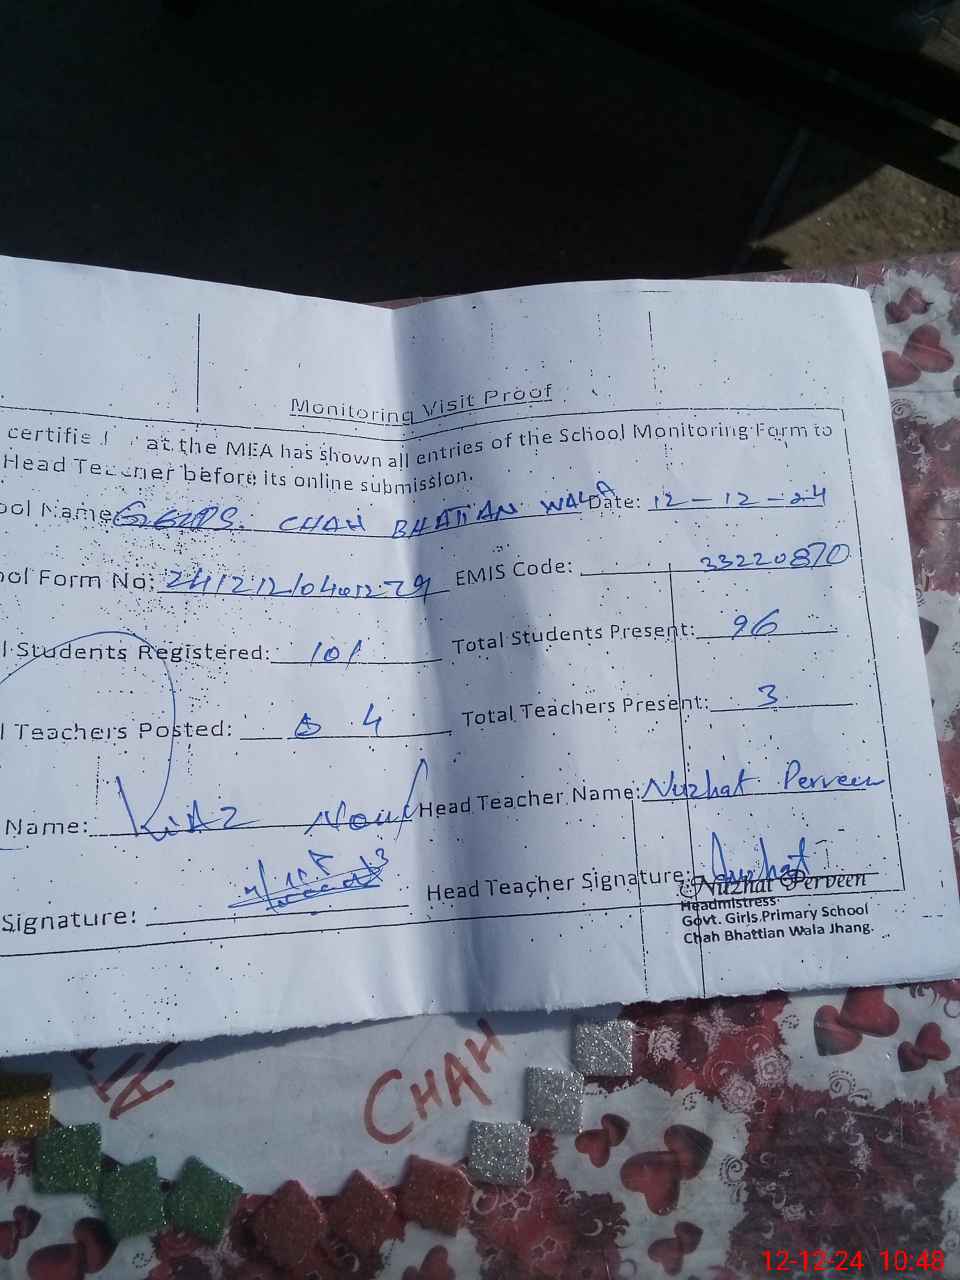 Monitoring Visit Proof
at the MEA has shown all entries of the School Monitoring Form to
Head Teacher before its online submission.
ool Name GGPS. CHAH BHATIAN WALA Date: 12-12-24
ool Form No: EMIS Code: 33220870
l Students Registered: 101 Total Students Present: 96
l Teachers Posted: 4 Total Teachers Present: 3
Name: Head Teacher Name: Nuzhat Perveen
Signature: Head Teacher Signature: Nuzhat
Nuzhat Perveen
Headmistress
Govt. Girls Primary School
Chah Bhattian Wala Jhang.
CHAH
12-12-24 10:48